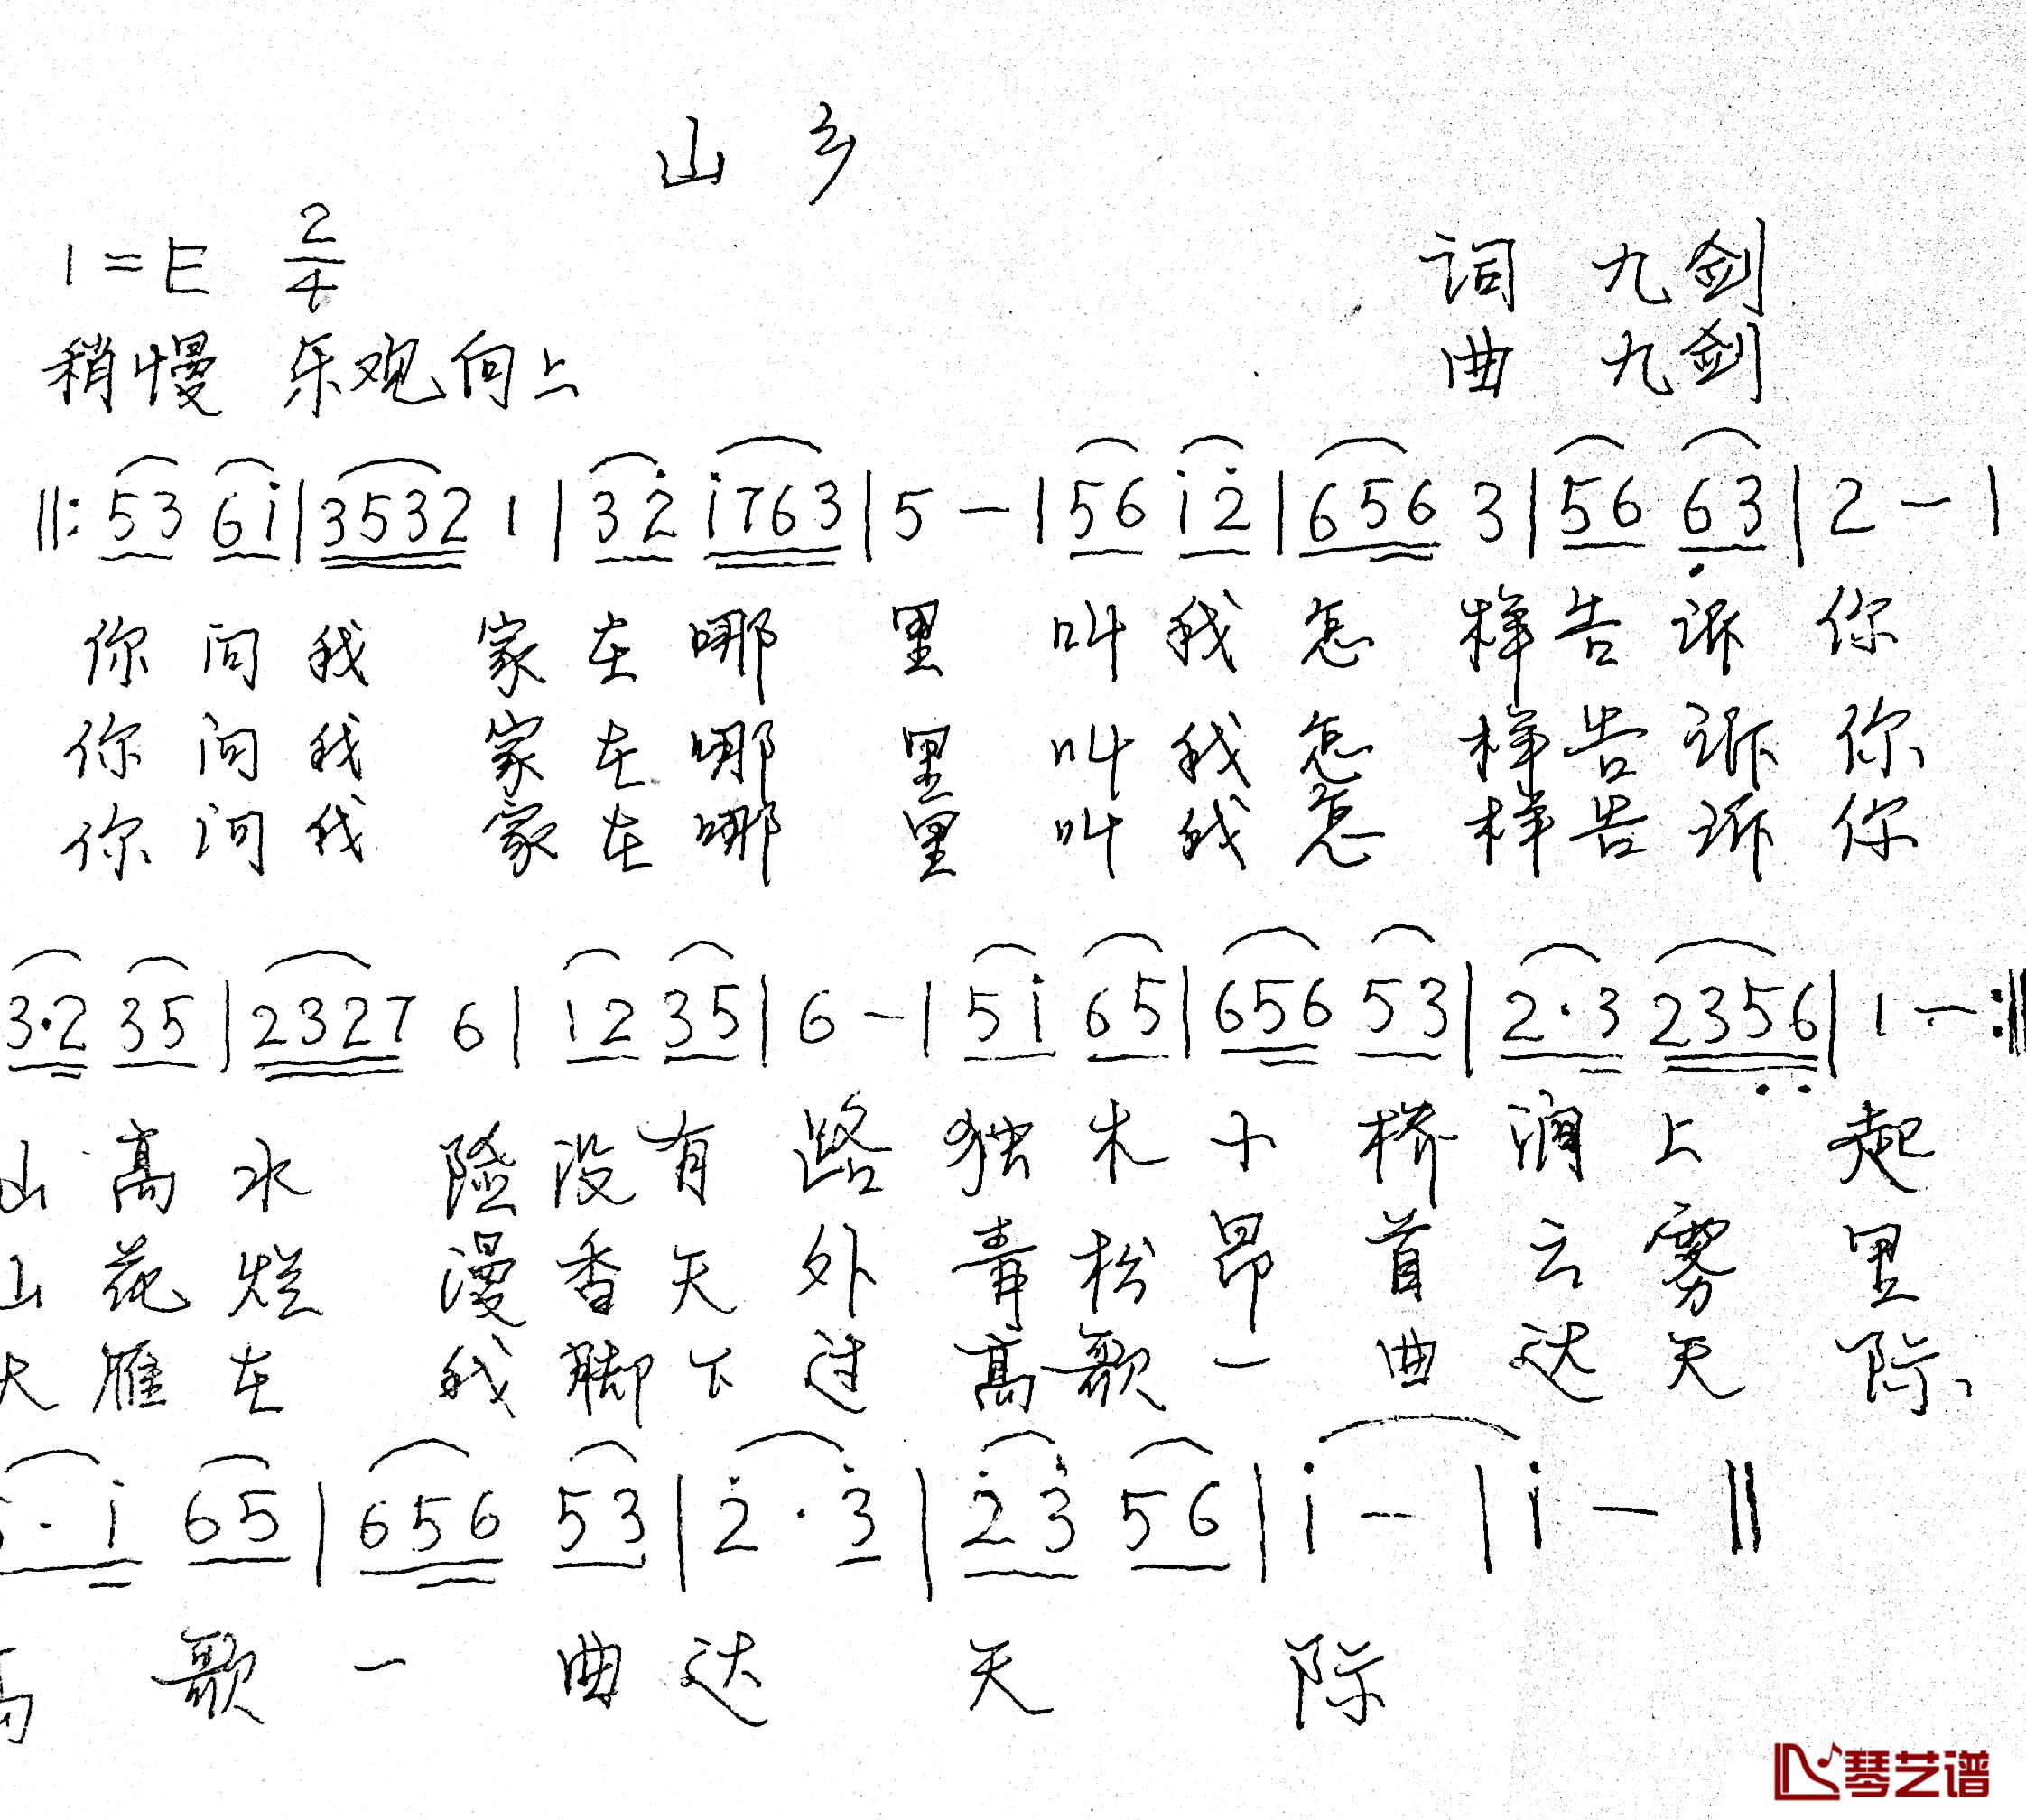 山乡
1=E 2/4
词 九剑
稍慢 乐观向上
曲 九剑
‖: 53 6i | 3532 1 | 32̇ i763 | 5 — | 56 i2̇ | 656 3 | 56 6̣3 | 2 — |
你问我 家在哪 里 叫我怎 样告诉你
你问我 家在哪 里 叫我怎 样告诉你
你问我 家在哪 里 叫我怎 样告诉你
3·2 35 | 2327 6 | i2 35 | 6 — | 5i 65 | 656 53 | 2·3 235̣6̣ | 1 — :‖
山高水 险没有 路 独木小 桥涧上 起
山花烂 漫香天 外 青松昂 首云雾 里
大雁在 我脚下 过 高歌一 曲达天 际
· i 65 | 656 53 | 2̇ · 3̇ | 2̇3̇ 56 | i — | i — ‖
高 歌 一 曲 达 天 际
琴艺谱